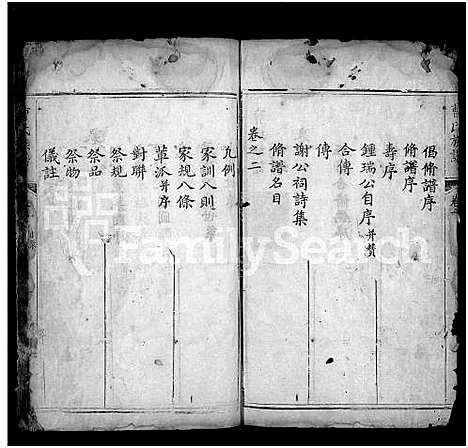 倡脩譜序
脩譜序
壽序
鍾瑞公自序并贊
合傳
傳
謝公祠詩集
脩譜名目
卷之二
凡例
家訓八則
家規八條
軰派并序
對聯
祭規
祭品
祭物
儀註
FamilySearch